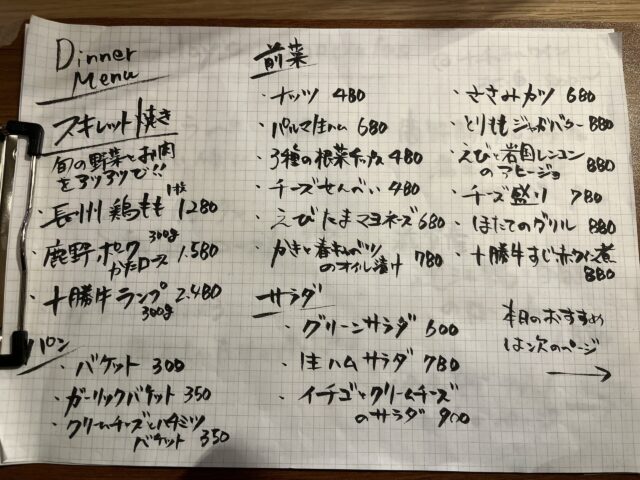 Dinner
Menu
スキレット焼き
旬の野菜とお肉
をアツアツで!!
・長州鶏もも 1枚 1280
・鹿野ポーク 300g
かたロース 1.580
・十勝牛ランプ 2.480
300g
パン
・バケット 300
・ガーリックバケット 350
・クリームチーズとハチミツ
バケット 350
前菜
・ナッツ 480
・パルマ生ハム 680
・3種の根菜チップス 480
・チーズせんべい 480
・えびたまマヨネーズ 680
・かきと春キャベツ
のオイル漬け 780
サラダ
・グリーンサラダ 600
・生ハムサラダ 780
・イチゴとクリームチーズ
のサラダ 900
・ささみカツ 680
・とりももジャガバター 880
・えびと岩国レンコン
のアヒージョ 880
・チーズ盛り 780
・ほたてのグリル 880
・十勝牛すじ赤ワイン煮
880
本日のおすすめ
は次のページ
→